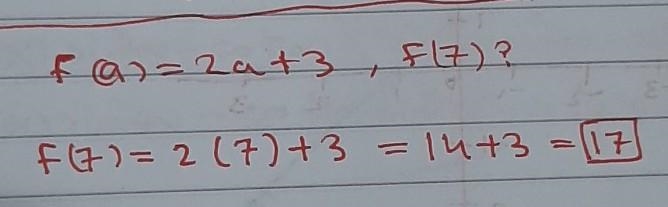 f(a) = 2a + 3 , f(7) ?
f(7) = 2 (7) + 3 = 14 + 3 = 17